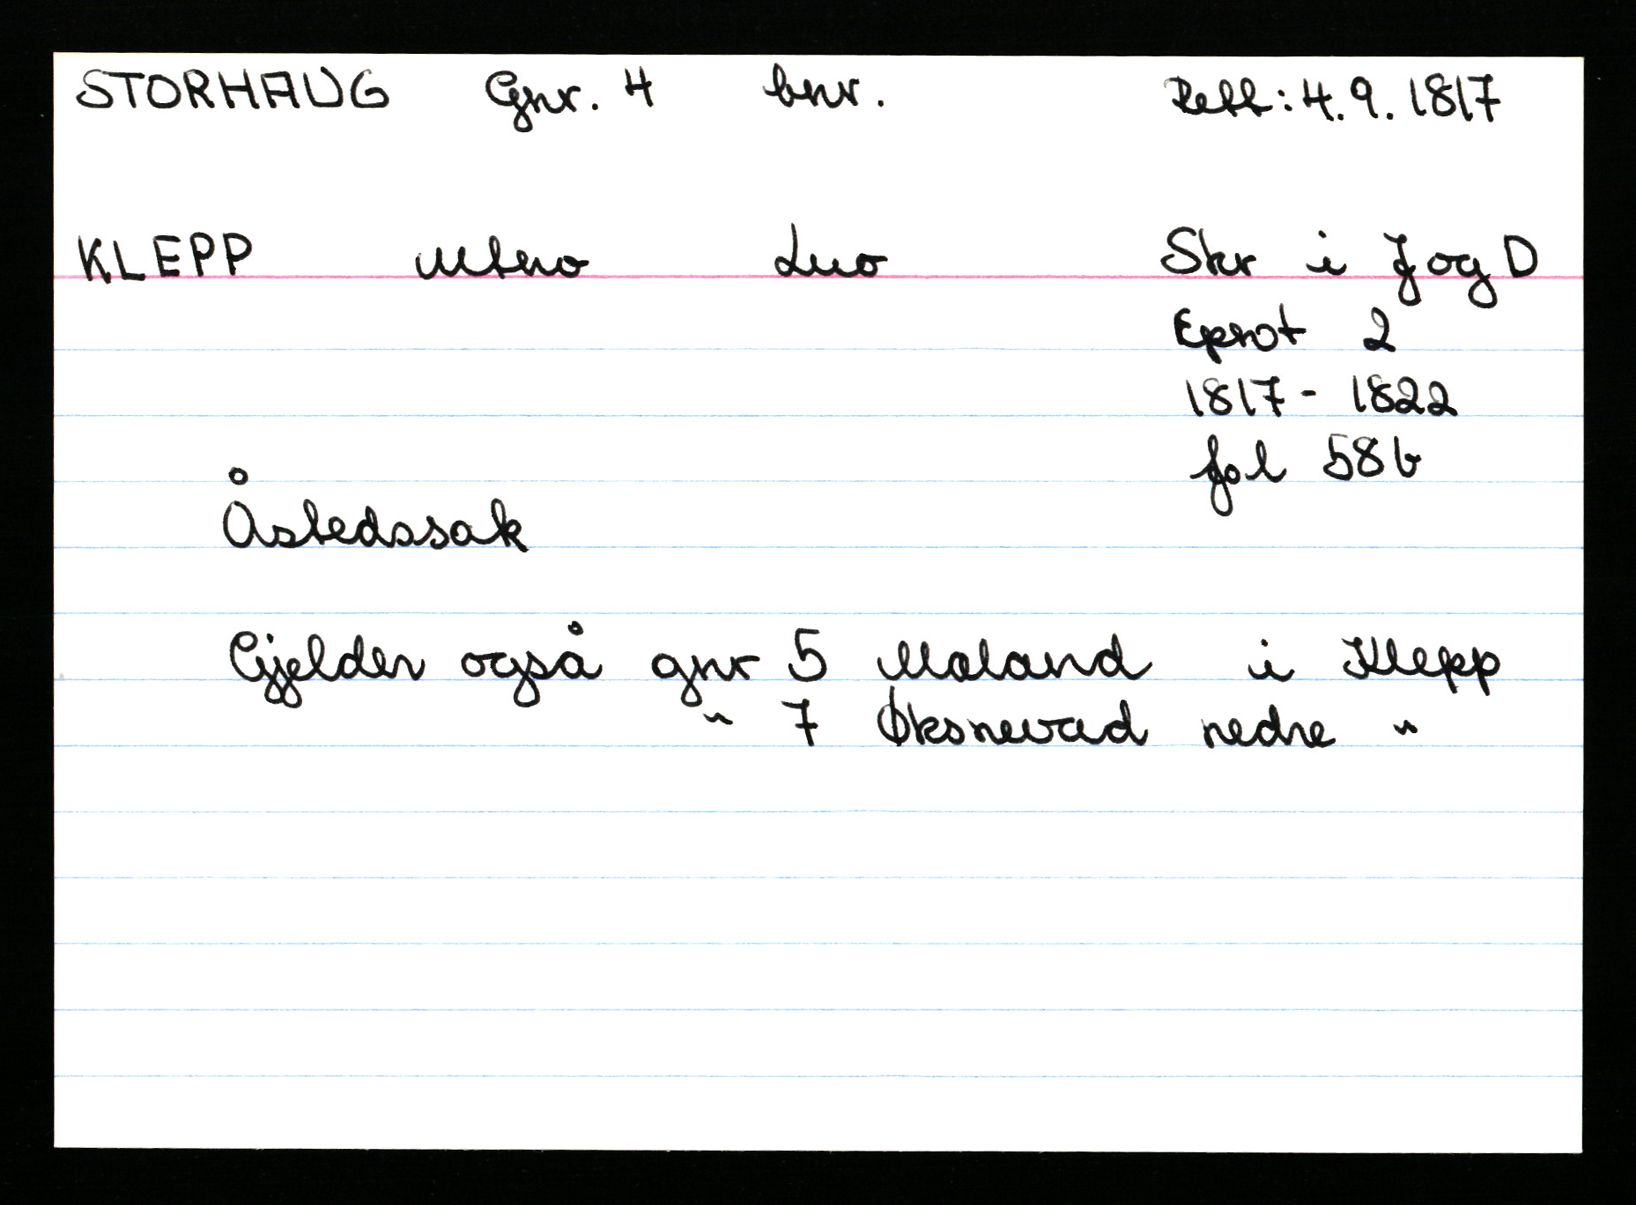 STORHAUG Gnr. 4 bnr. Rett: 4.9.1817
KLEPP Utsno Lno Skr i J og D
Eprot 2
1817 - 1822
fol 58 b
Åstedssak
Gjelder også gnr 5 Moland i Klepp
" 7 Øksnevad nedre "